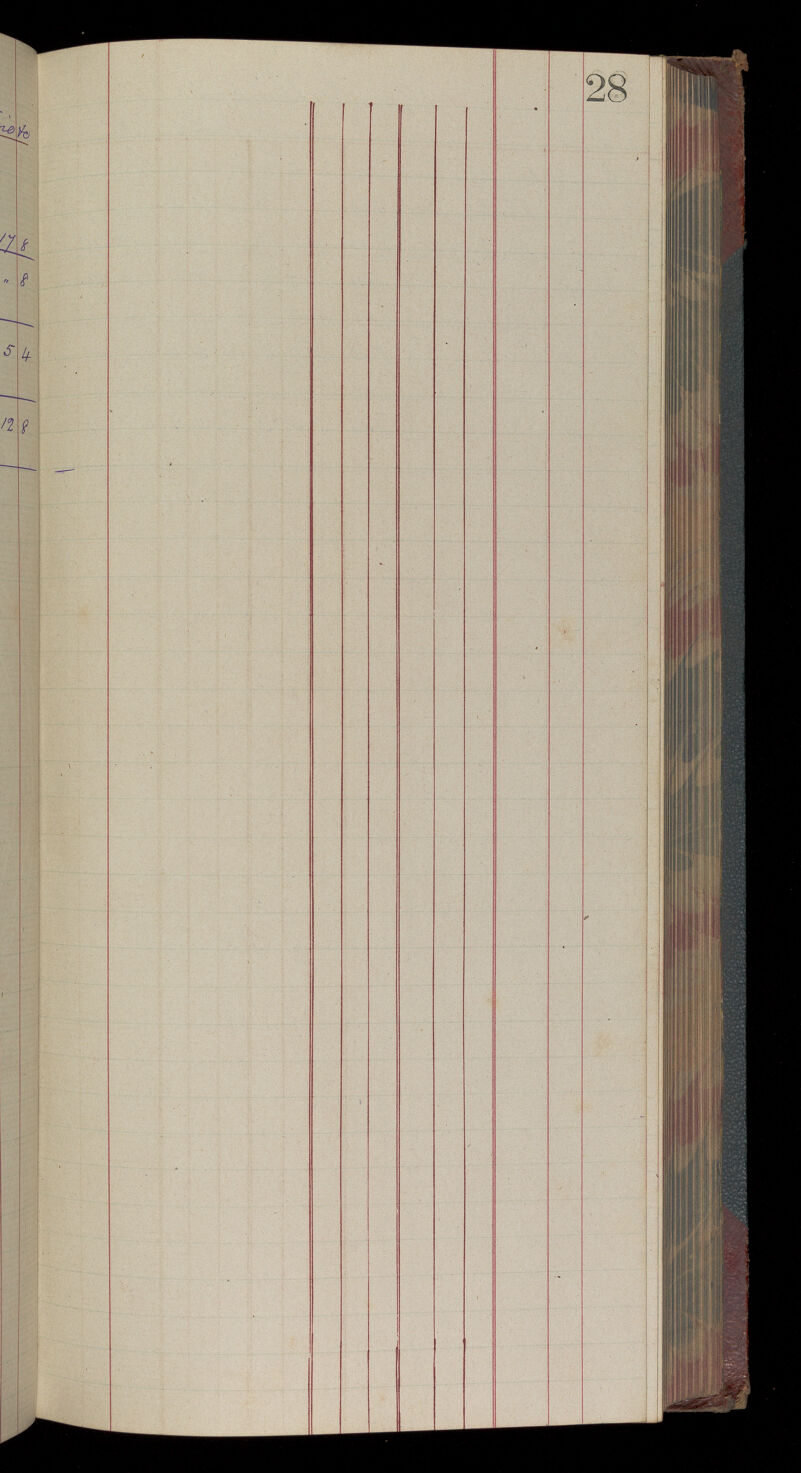 17 8
" 8
5 4
12 8
28